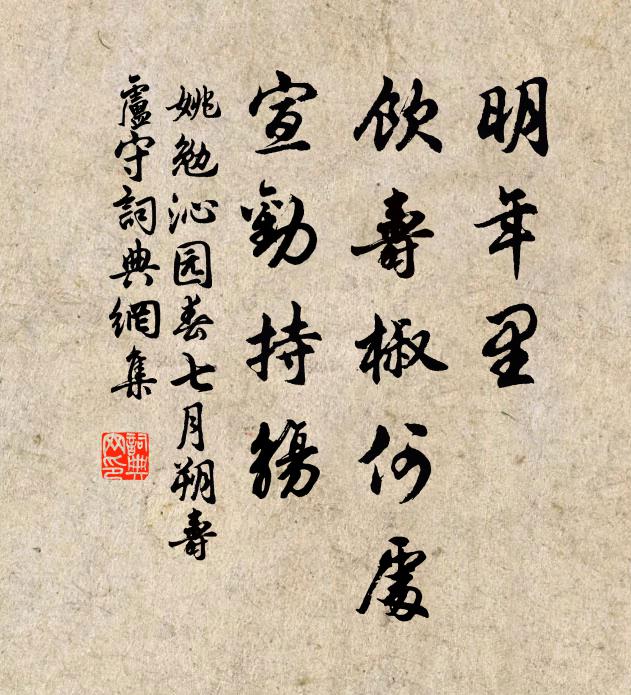 明年里
飲壽椒何處
宣勸持觴
姚勉沁园春七月朔壽
盧守詞典網集
詞典网印